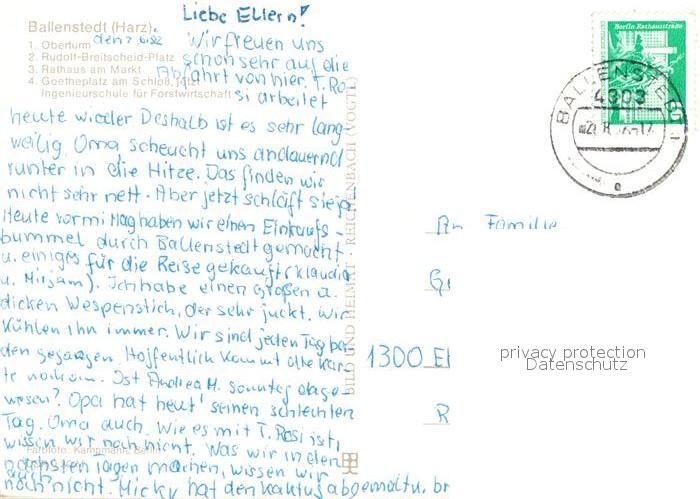 Liebe Eltern!
Ballenstedt (Harz)
1. Oberturm
2. Rudolf-Breitscheid-Platz
3. Rathaus am Markt
4. Goetheplatz am Schloß, jetzt
Ingenieurschule für Forstwirtschaft
Wir freuen uns
schon sehr auf die
Abfahrt von hier. T. Ro
si arbeitet
heute wieder Deshalb ist es sehr lang-
weilig. Oma scheucht uns andauernd
runter in die Hitze. Das finden wir
nicht sehr nett. Aber jetzt schläft sie ja
Heute vormittag haben wir einen Einkaufs-
bummel durch Ballenstedt gemacht
u. einiges für die Reise gekauft (Klaudia
u. Mirjam). Ich habe einen großen u.
dicken Wespenstich, der sehr juckt. Wir
kühlen ihn immer. Wir sind jeden Tag ba
den gegangen Hoffentlich kommt die Kar
te noch an. Ist Andrea M. Sonntag dage-
wesen? Opa hat heut' seinen schlechten
Tag. Oma auch. Wie es mit T. Rosi ist,
wissen wir noch nicht. Was wir in den
nächsten Tagen machen, wissen wir
auch noch nicht. Micky hat den Kaktus abgemalt u. br
Farbfoto: Kampmann, Berlin
BILD UND HEIMAT · REICHENBACH (VOGTL)
Berlin Rathausstraße
BALLENSTEDT 1
4303
An Familie
G
1300 E
R
privacy protection
Datenschutz